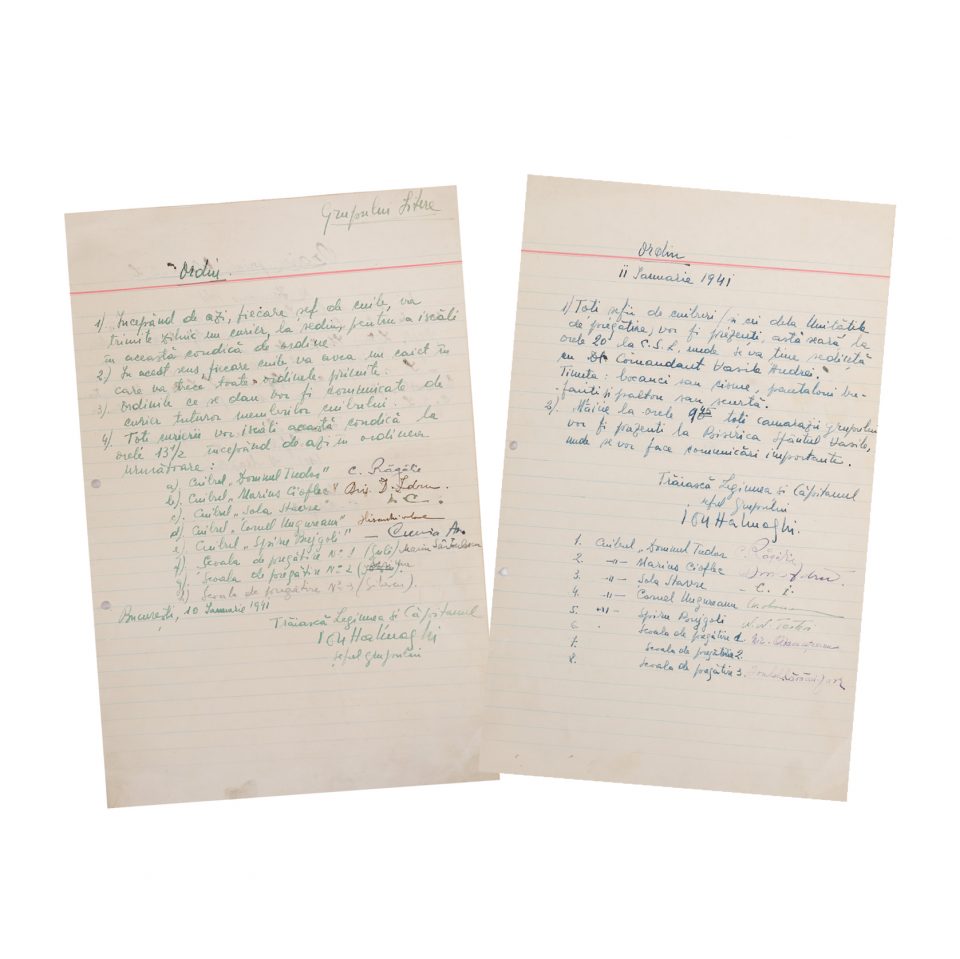 Grupului Litere
Ordin.
1) Începând de azi, fiecare șef de cuib, va
trimite zilnic un curier, la sediu, pentru a iscăli
în această condică de ordine.
2) În acest sens fiecare cuib va avea un caiet în
care va trece, toate ordinele primite.
3) Ordinile ce se dau vor fi comunicate de
curier tuturor membrilor cuibului.
4) Toți curierii vor iscăli această condică la
orele 13 1/2 începând de azi în ordinea
următoare:
a) Cuibul „Domnul Tudor" C. Răgălie
b) Cuibul „Marius Cioflec"
c) Cuibul „Sola Stavre" C.
d) Cuibul „Cornel Ungureanu"
e) Cuibul „Spiru Bujgoli" —
f) Școala de pregătire No 1
g) Școala de pregătire No 2
h) Școala de pregătire No 3
București, 10 Ianuarie 1941
Trăiască Legiunea și Căpitanul
Ion Halmaghi
șeful grupului
Ordin
11 Ianuarie 1941
1) Toți șefii de cuiburi și cei dela Unitățile
de pregătire, vor fi prezenți, astă seară la
orele 20 la C.S.L. unde se va ține ședință
cu Comandant Vasile Andrei.
Ținuta: bocanci sau cisme, pantaloni bu-
fanți și palton sau scurtă.
2). Mâine la orele 9 toți camarazii grupului
vor fi prezenți la Biserica Sfântul Vasile,
unde se vor face comunicări importante.
Trăiască Legiunea și Căpitanul
șeful grupului
Ion Halmaghi.
1. Cuibul „Domnul Tudor C. Răgălie
2. —"— Marius Cioflec
3. —"— Sola Stavre — C. i.
4. —"— Cornel Ungureanu
5. —"— Spiru Bujgoli
6. " Școala de pregătire 1.
7. Școala de pregătire 2
8. Școala de pregătire 3.